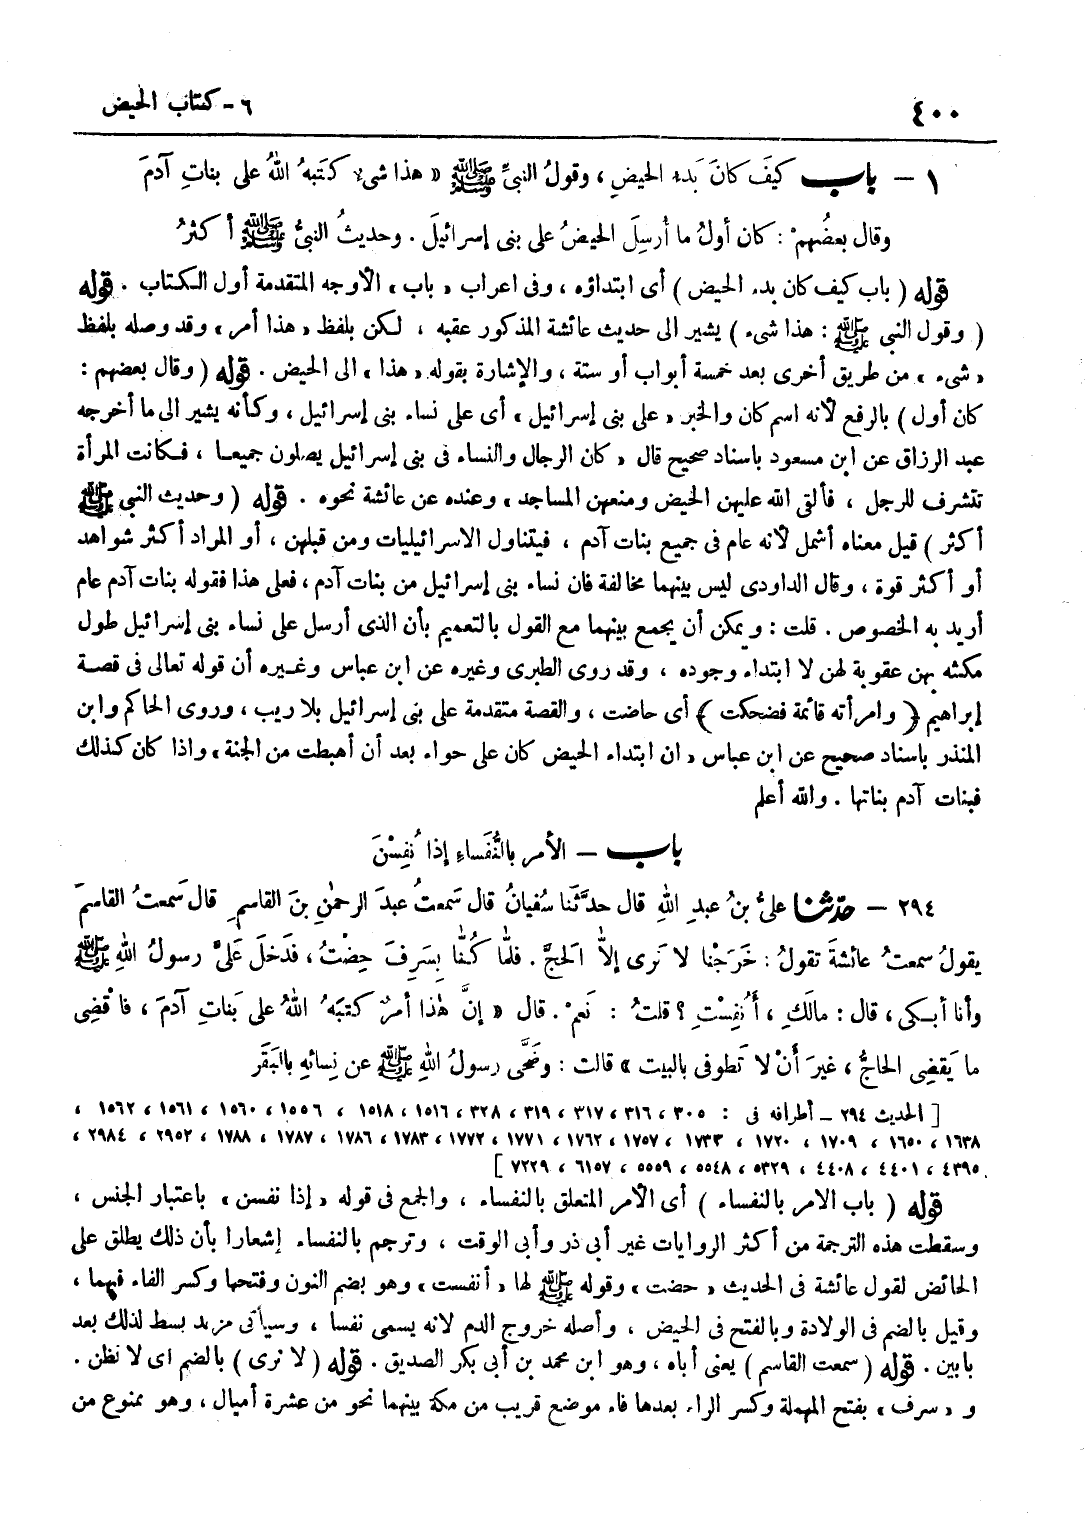 ٤٠٠
٦ - كتاب الحيض
١ - باب كيفَ كانَ بَدء الحيضِ ، وقولُ النبيِّ ﷺ « هذا شيء كتَبهُ اللهُ على بناتِ آدمَ
وقال بعضُهمْ : كان أولُ ما أُرسِلَ الحيضُ على بنى إسرائيلَ . وحديثُ النبيُّ ﷺ أكثرُ
قوله ( باب كيف كان بدء الحيض ) أى ابتداؤه ، وفى اعراب « باب » الأوجه المتقدمة أول الكتاب . قوله
( وقول النبي ﷺ : هذا شيء ) يشير الى حديث عائشة المذكور عقبه ، لكن بلفظ « هذا أمر » وقد وصله بلفظ
« شيء » من طريق أخرى بعد خمسة أبواب أو ستة ، والإشارة بقوله « هذا » الى الحيض . قوله ( وقال بعضهم :
كان أول ) بالرفع لأنه اسم كان والخبر « على بنى إسرائيل » أى على نساء بنى إسرائيل ، وكأنه يشير الى ما أخرجه
عبد الرزاق عن ابن مسعود باسناد صحيح قال « كان الرجال والنساء فى بنى إسرائيل يصلون جميعا ، فكانت المرأة
تتشرف للرجل ، فألقى الله عليهن الحيض ومنعهن المساجد » وعنده عن عائشة نحوه . قوله ( وحديث النبي ﷺ
أكثر ) قيل معناه أشمل لأنه عام فى جميع بنات آدم ، فيتناول الاسرائيليات ومن قبلهن ، أو المراد أكثر شواهد
أو أكثر قوة ، وقال الداودى ليس بينهما مخالفة فان نساء بنى إسرائيل من بنات آدم ، فعلى هذا فقوله بنات آدم عام
أريد به الخصوص . قلت : ويمكن أن يجمع بينهما مع القول بالتعميم بأن الذى أرسل على نساء بنى إسرائيل طول
مكثه بهن عقوبة لهن لا ابتداء وجوده ، وقد روى الطبرى وغيره عن ابن عباس وغيره أن قوله تعالى فى قصة
إبراهيم ﴿ وامرأته قائمة فضحكت ﴾ أى حاضت ، والقصة متقدمة على بنى إسرائيل بلا ريب ، وروى الحاكم وابن
المنذر باسناد صحيح عن ابن عباس « ان ابتداء الحيض كان على حواء بعد أن أهبطت من الجنة » واذا كان كذلك
فبنات آدم بناتها . والله أعلم
باب - الأمر بالنُّفَساءِ إذا نُفِسْنَ
٢٩٤ - حدّثنا علىُّ بنُ عبدِ اللهِ قال حدَّثَنا سُفيانُ قال سَمعتُ عبدَ الرحمٰنِ بنَ القاسمِ قال سَمعتُ القاسمَ
يقولُ سمعتُ عائشةَ تقولُ : خَرَجْنا لا نَرى إلاَّ الحجَّ . فلمَّا كُنَّا بِسَرِفَ حِضْتُ ، فَدَخلَ عَلَىَّ رسولُ اللهِ ﷺ
وأنا أبكى ، قال : مالَكِ ، أَنُفِسْتِ ؟ قلتُ : نَعمْ . قال « إنَّ هٰذا أمرٌ كتبَهُ اللهُ على بَناتِ آدمَ ، فاقْضِى
ما يَقضِى الحاجُّ ، غيرَ أَنْ لا تَطوفى بالبيت » قالت : وضَحَّى رسولُ اللهِ ﷺ عن نِسائهِ بالبَقَر
[ الحديث ٢٩٤ - أطرافه فى : ٣٠٥ ، ٣١٦ ، ٣١٧ ، ٣١٩ ، ٣٢٨ ، ١٥١٦ ، ١٥١٨ ، ١٥٥٦ ، ١٥٦٠ ، ١٥٦١ ، ١٥٦٢ ،
١٦٣٨ ، ١٦٥٠ ، ١٧٠٩ ، ١٧٢٠ ، ١٧٣٣ ، ١٧٥٧ ، ١٧٦٢ ، ١٧٧١ ، ١٧٧٢ ، ١٧٨٣ ، ١٧٨٦ ، ١٧٨٧ ، ١٧٨٨ ، ٢٩٥٢ ، ٢٩٨٤ ،
٤٣٩٥ ، ٤٤٠١ ، ٤٤٠٨ ، ٥٣٢٩ ، ٥٥٤٨ ، ٥٥٥٩ ، ٦١٥٧ ، ٧٢٢٩ ]
قوله ( باب الامر بالنفساء ) أى الأمر المتعلق بالنفساء ، والجمع فى قوله « إذا نفسن » باعتبار الجنس ،
وسقطت هذه الترجمة من أكثر الروايات غير أبى ذر وأبى الوقت ، وترجم بالنفساء إشعارا بأن ذلك يطلق على
الحائض لقول عائشة فى الحديث « حضت » وقوله ﷺ لها « أنفست » وهو بضم النون وفتحها وكسر الفاء فيهما ،
وقيل بالضم فى الولادة وبالفتح فى الحيض ، وأصله خروج الدم لانه يسمى نفسا ، وسيأتى مزيد بسط لذلك بعد
بابين . قوله ( سمعت القاسم ) يعنى أباه ، وهو ابن محمد بن أبي بكر الصديق . قوله ( لا نرى ) بالضم اى لا نظن .
و « سرف » بفتح المهملة وكسر الراء بعدها فاء موضع قريب من مكة بينهما نحو من عشرة أميال ، وهو ممنوع من